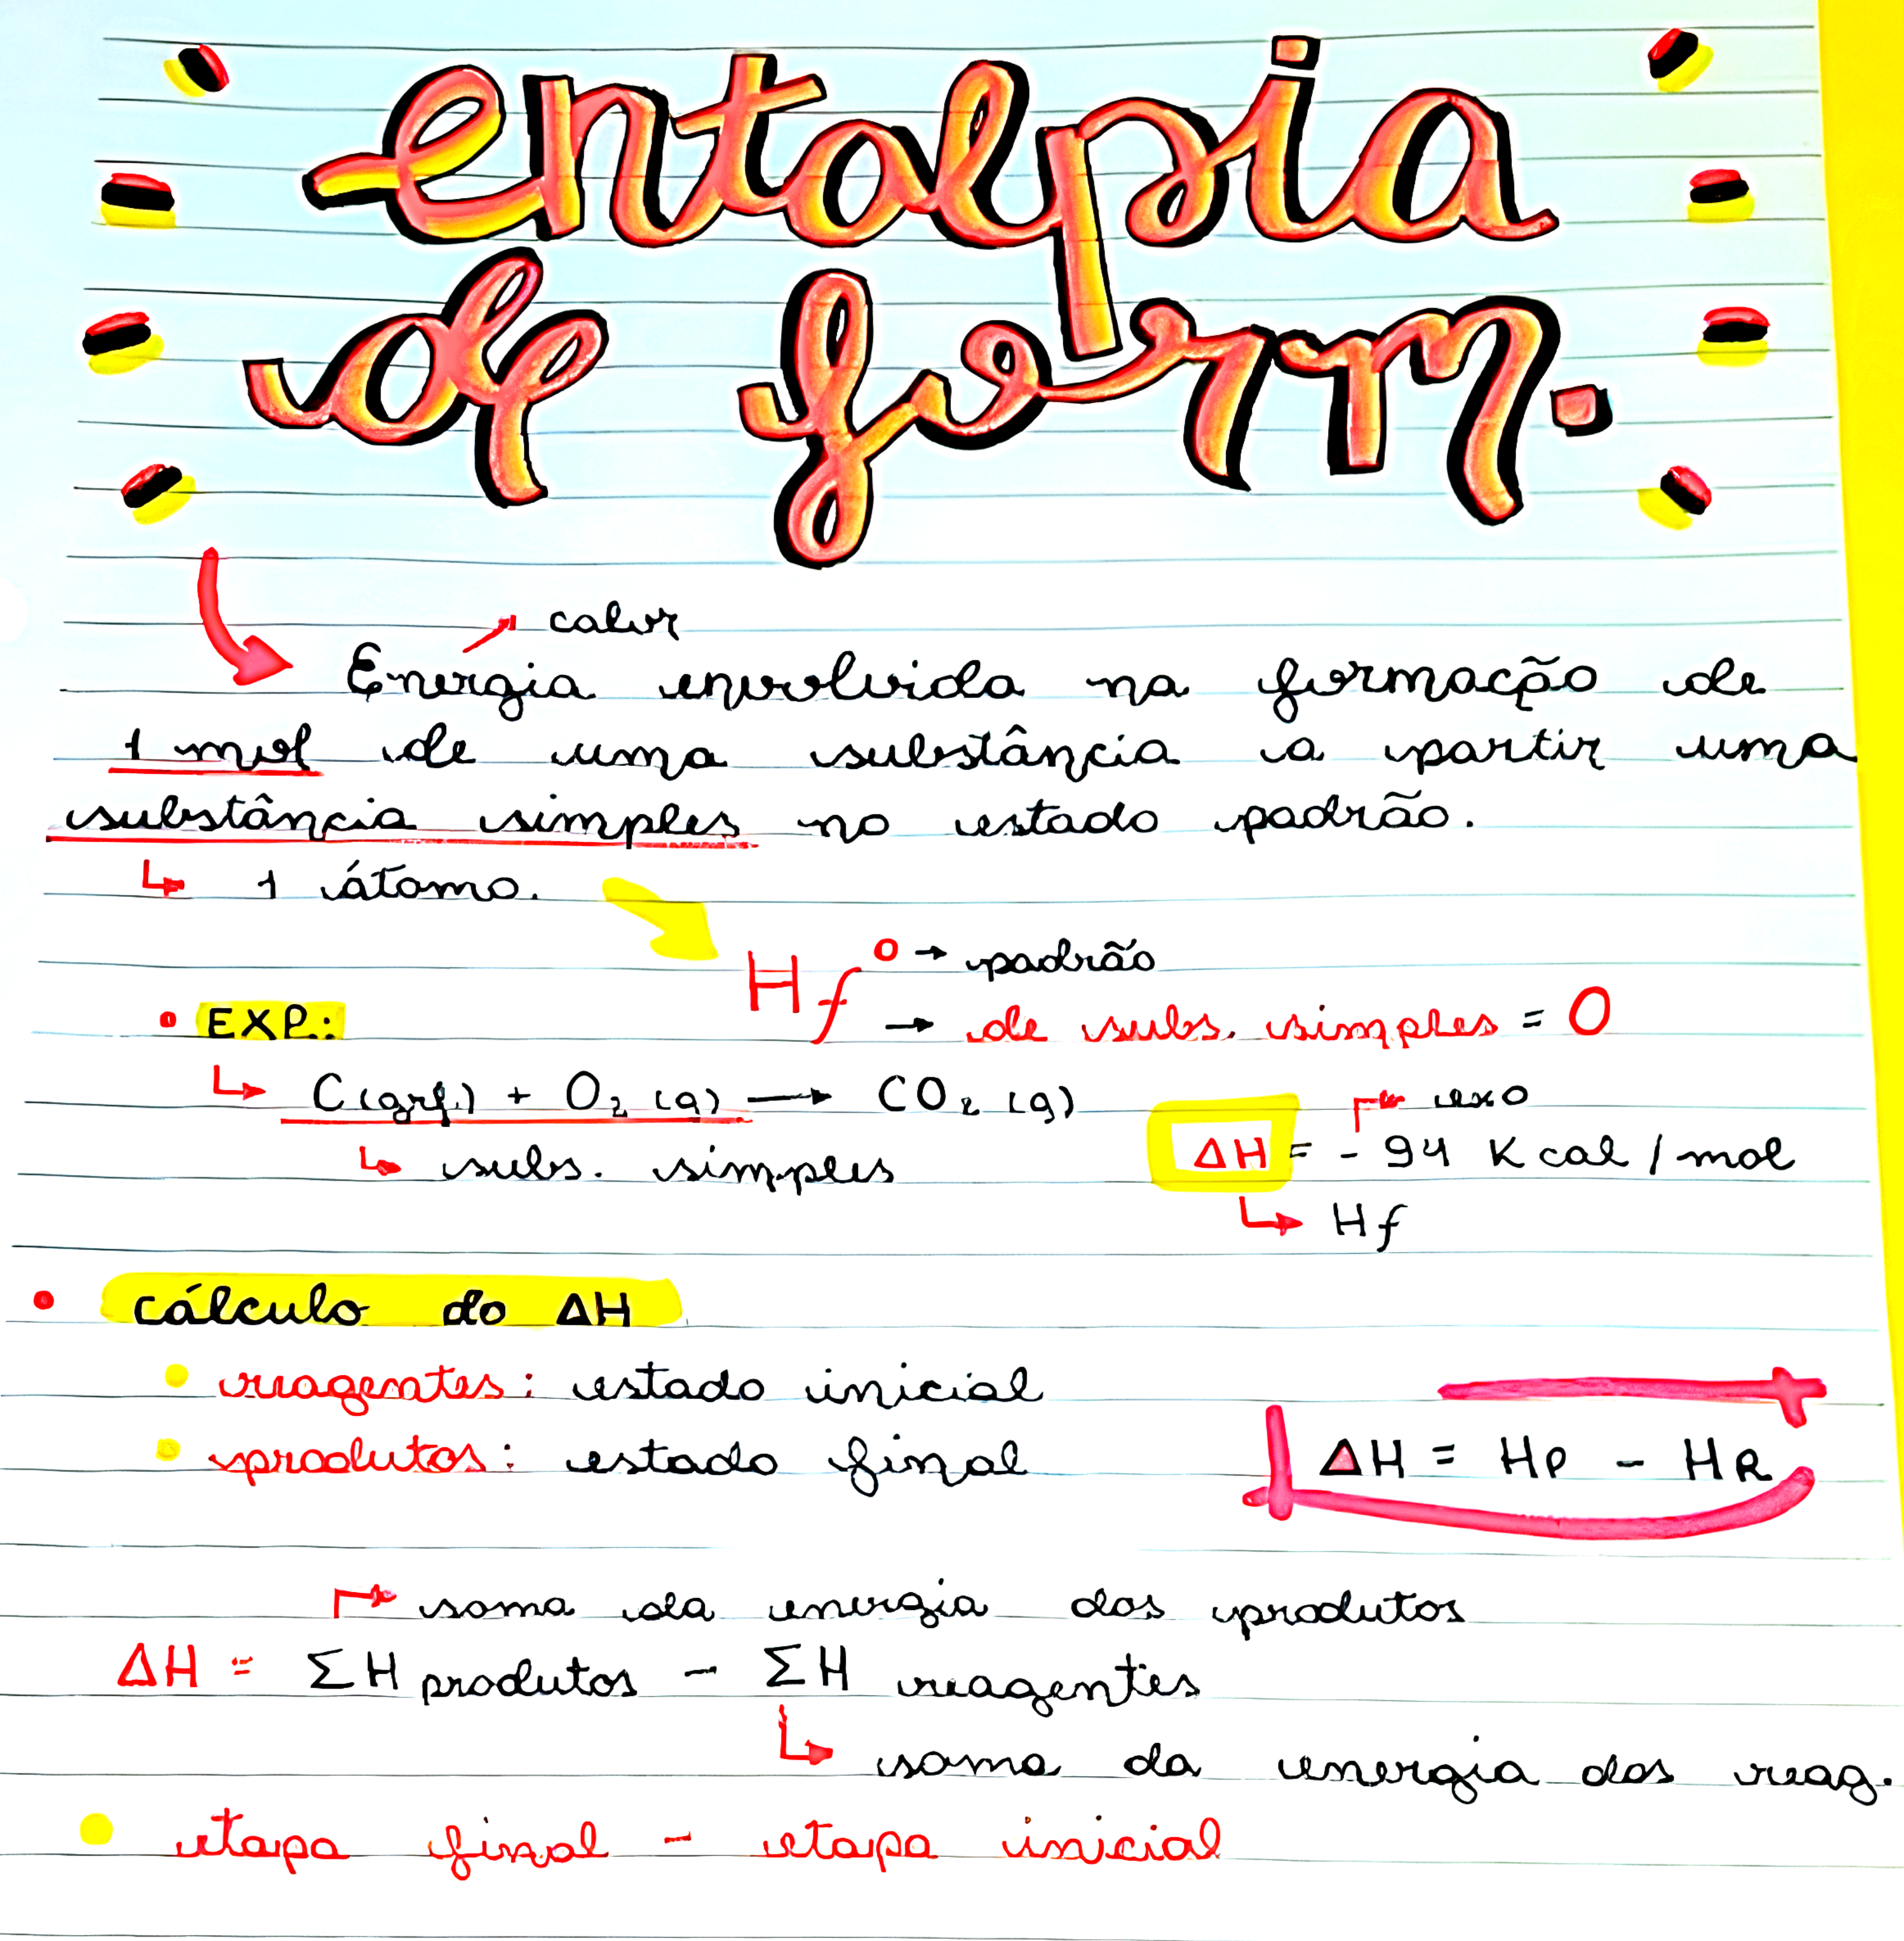 entalpia
de form.
calor
Energia envolvida na formação de
1 mol de uma substância a partir uma
substância simples no estado padrão.
↳ 1 átomo.
Hf° → padrão
→ de subs. simples = 0
• EXP.:
↳ C(graf.) + O₂ (g) → CO₂ (g)
↳ subs. simples
exo
ΔH = - 94 Kcal / mol
↳ Hf
• cálculo do ΔH
• reagentes: estado inicial
• produtos: estado final
ΔH = HP - HR
soma da energia dos produtos
ΔH = ΣH produtos - ΣH reagentes
↳ soma da energia dos reag.
• etapa final - etapa inicial